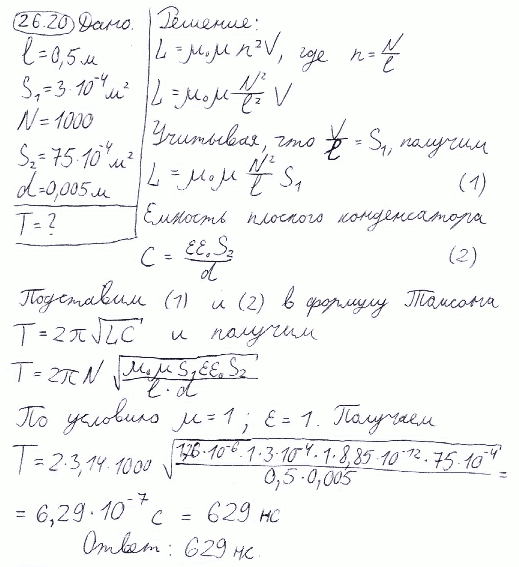 26.20 Дано:
l = 0,5 м
S₁ = 3·10⁻⁴ м²
N = 1000
S₂ = 75·10⁻⁴ м²
d = 0,005 м
T = ?
Решение:
L = μ₀μ n²V, где n = N/l
L = μ₀μ N²/l² V
Учитывая, что V/l = S₁, получим
L = μ₀μ N²/l S₁ (1)
Емкость плоского конденсатора
C = εε₀S₂/d (2)
Подставим (1) и (2) в формулу Томсона
T = 2π√LC и получим
T = 2πN √(μ₀μS₁εε₀S₂/l·d)
По условию μ = 1; ε = 1. Получаем
T = 2·3,14·1000 √(1,26·10⁻⁶·1·3·10⁻⁴·1·8,85·10⁻¹²·75·10⁻⁴/0,5·0,005) =
= 6,29·10⁻⁷ с = 629 нс
Ответ: 629 нс.